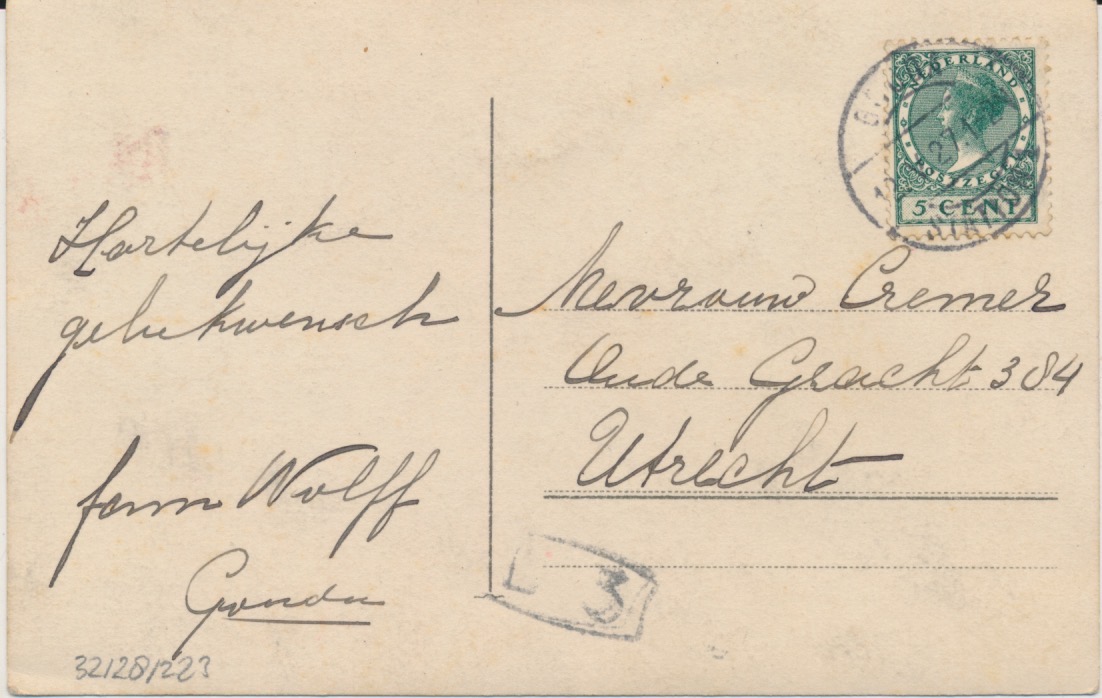 Hartelijke
gelukwensch
fam Wolff
Gouda
32/28/223
NEDERLAND
POSTZEGEL
5 CENT
Mevrouw Cremer
Oude Gracht 384
Utrecht
3